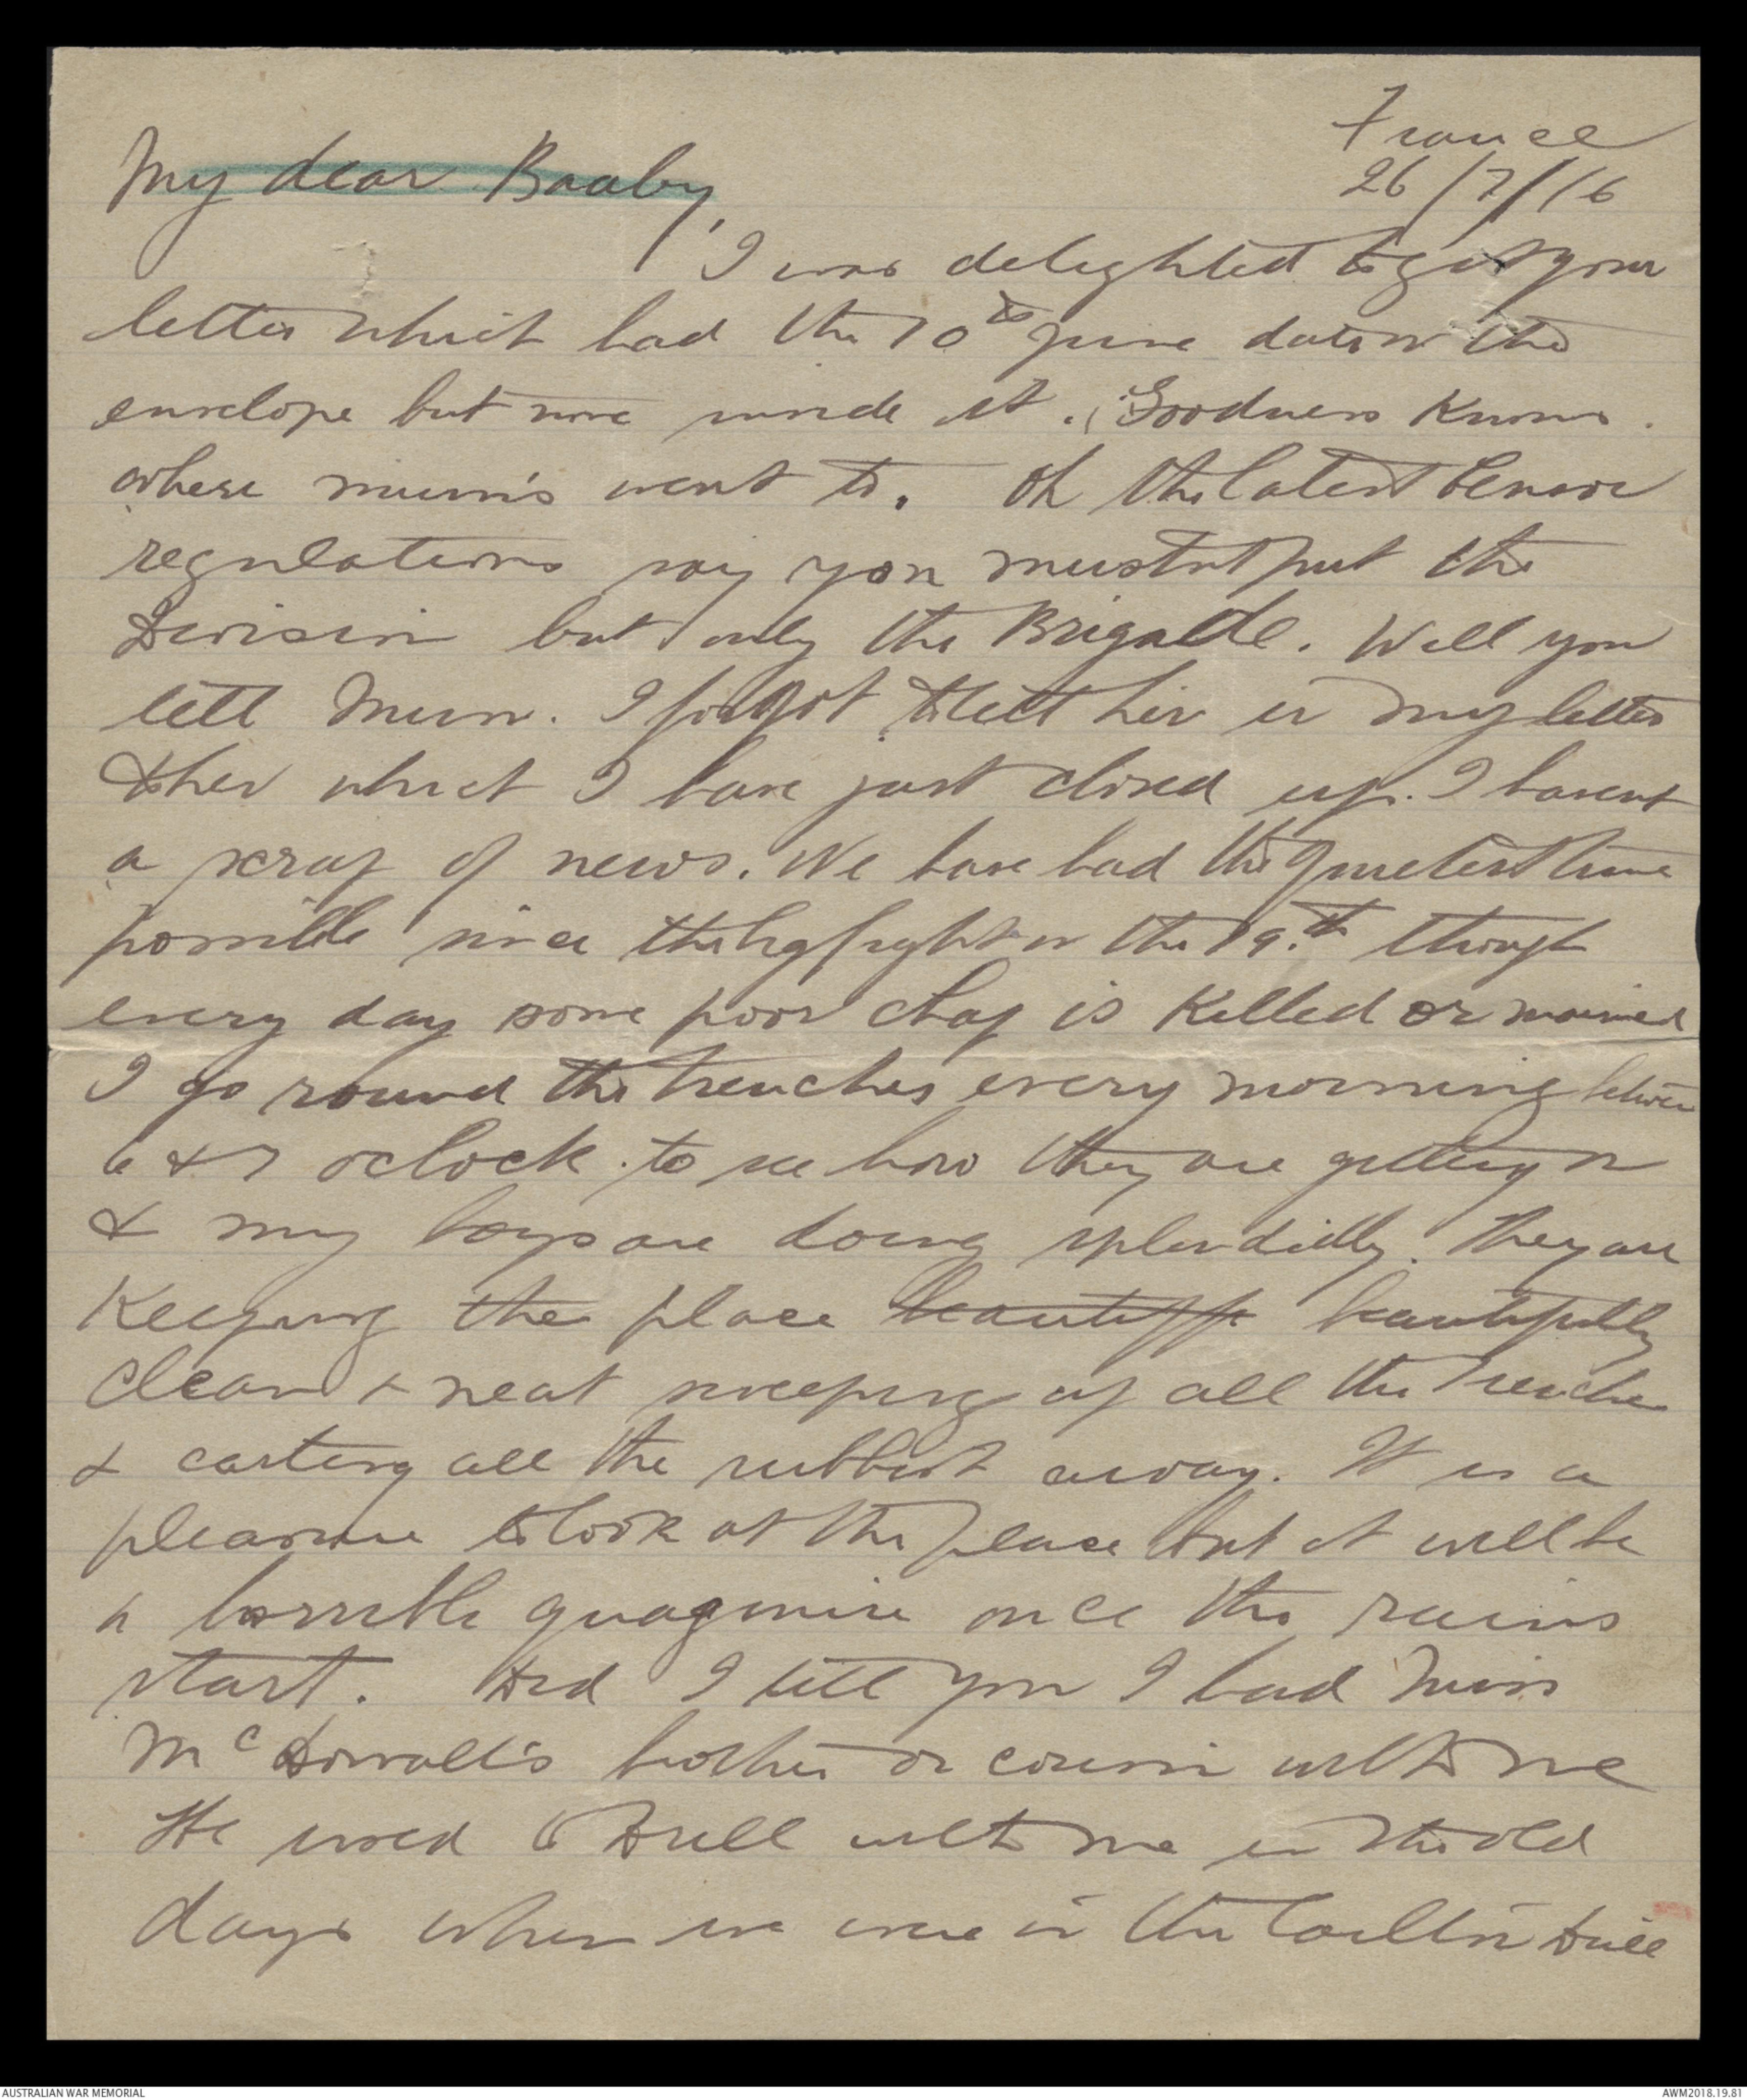 France
26/7/16
My dear Baaby,
I was delighted to get your
letter which had the 10th June date on the
envelope but none inside it. Goodness knows
where mum's went to. Oh the latest Censor
regulations say you mustnt put the
Division but only the Brigade. Will you
tell Mum. I forgot to tell her in my letter
to her which I have just closed up. I havent
a scrap of news. We have had the quietest time
possible since the big fight on the 19th. though
every day some poor chap is killed or maimed
I go round the trenches every morning between
6 & 7 oclock to see how they are getting on
& my boys are doing splendidly. They are
Keeping the place beautiff beautifully
clean & neat sweeping up all the trenches
& carting all the rubbish away. It is a
pleasure to look at the place but it will be
a horrible quagmire once the rains
start. Did I tell you I had Miss
McDowall's brother or cousin with me
He used to drill with me in the old
days when we were in the Carlton drill
AUSTRALIAN WAR MEMORIAL
AWM2018.19.81